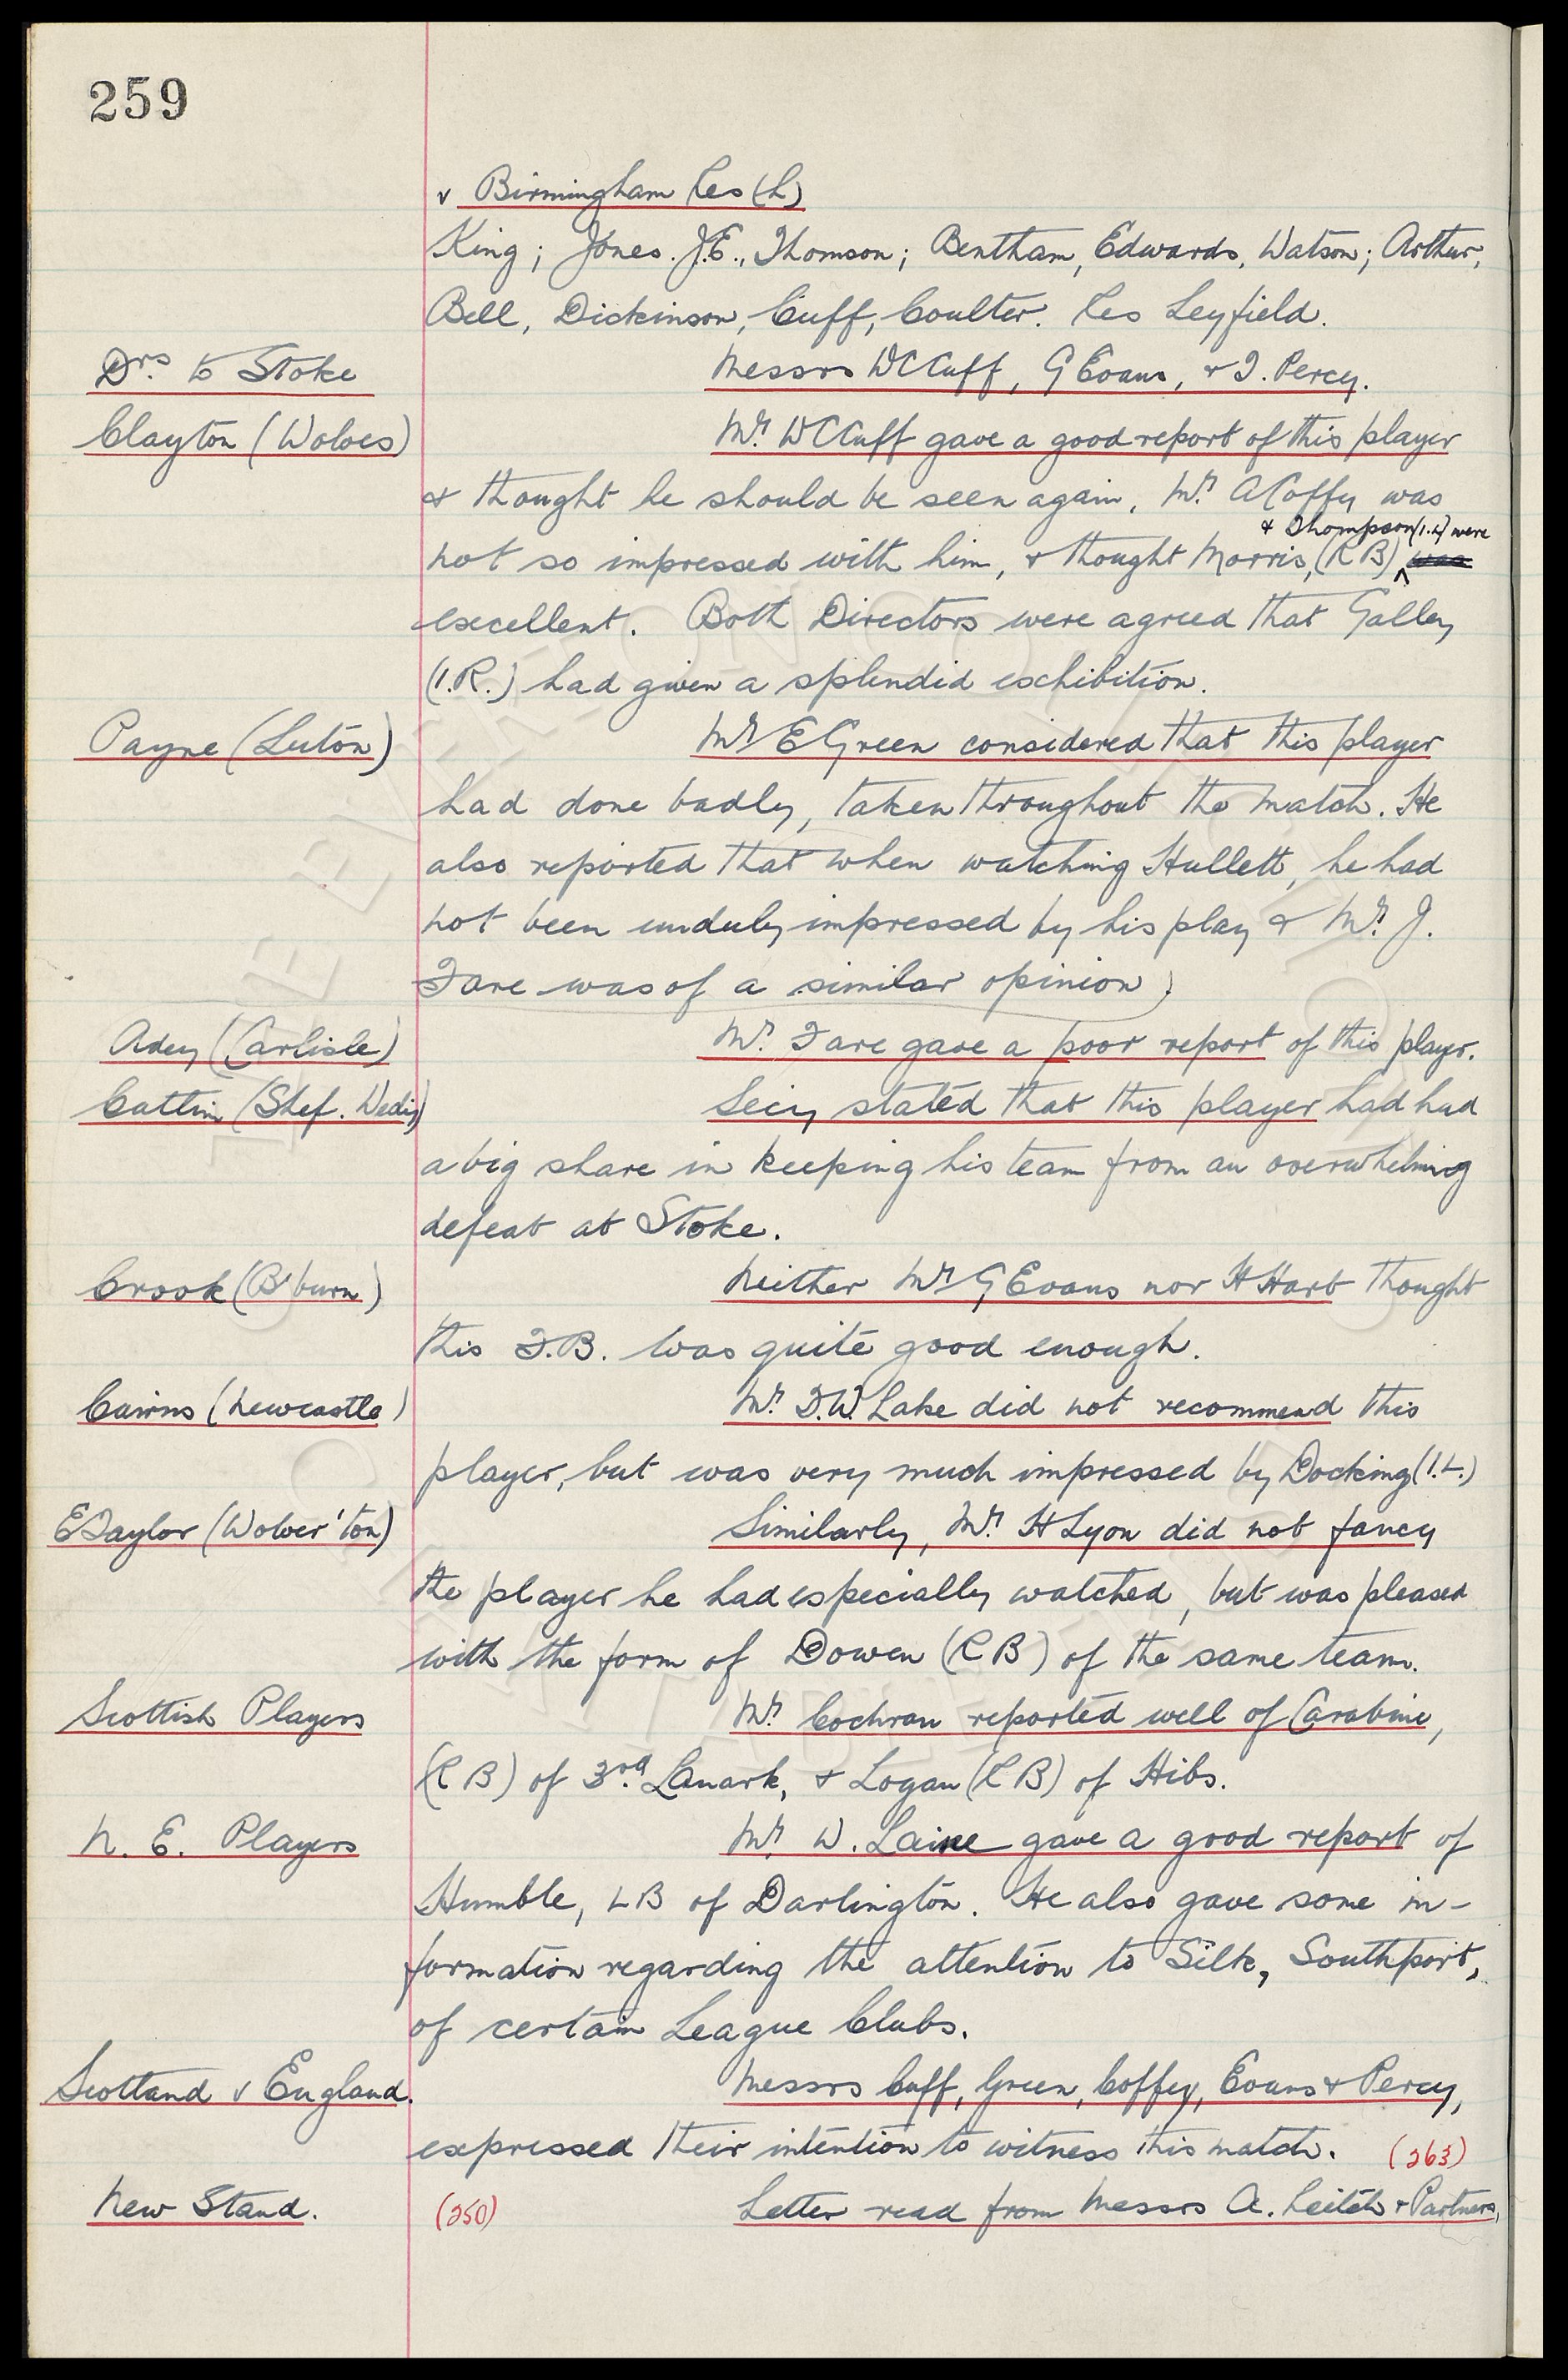 259
v Birmingham Res (h)
King; Jones. J.E., Thomson; Bentham, Edwards, Watson; Arthur,
Bell, Dickinson, Cuff, Coulter. Res Leyfield.
Drs. to Stoke Messrs WCCuff, GEvans, & T. Percy.
Clayton (Wolves) Mr. WCCuff gave a good report of this player
& thought he should be seen again, Mr. ACoffey was
& Thompson (I.L) were
not so impressed with him, & thought Morris, (RB) was
excellent. Both Directors were agreed that Galley
(I.R.) had given a splendid exhibition.
Payne (Luton) Mr EGreen considered that this player
had done badly, taken throughout the match. He
also reported that when watching Hullett, he had
not been unduly impressed by his play & Mr. J.
Fare was of a similar opinion)
Adey (Carlisle) Mr. Fare gave a poor report of this player.
Catlin (Shef. Wedy) Secy stated that this player had had
a big share in keeping his team from an overwhelming
defeat at Stoke.
Crook (B'burn) Neither Mr GEvans nor HHart thought
this F.B. was quite good enough.
Cairns (Newcastle) Mr. F.W. Lake did not recommend this
player, but was very much impressed by Docking (I.L.)
ETaylor (Wolver'ton) Similarly, Mr. HLyon did not fancy
the player he had especially watched, but was pleased
with the form of Dowen (RB) of the same team.
Scottish Players Mr. Cochran reported well of Carabine,
(RB) of 3rd. Lanark, & Logan (RB) of Hibs.
N. E. Players Mr. W. Laine gave a good report of
Humble, LB of Darlington. He also gave some in-
formation regarding the attention to Silk, Southport,
of certain League Clubs.
Scotland v England. Messrs Cuff, Green, Coffey, Evans & Percy,
expressed their intention to witness this match. (263)
New Stand. (250) Letter read from Messrs A. Leitch & Partners,